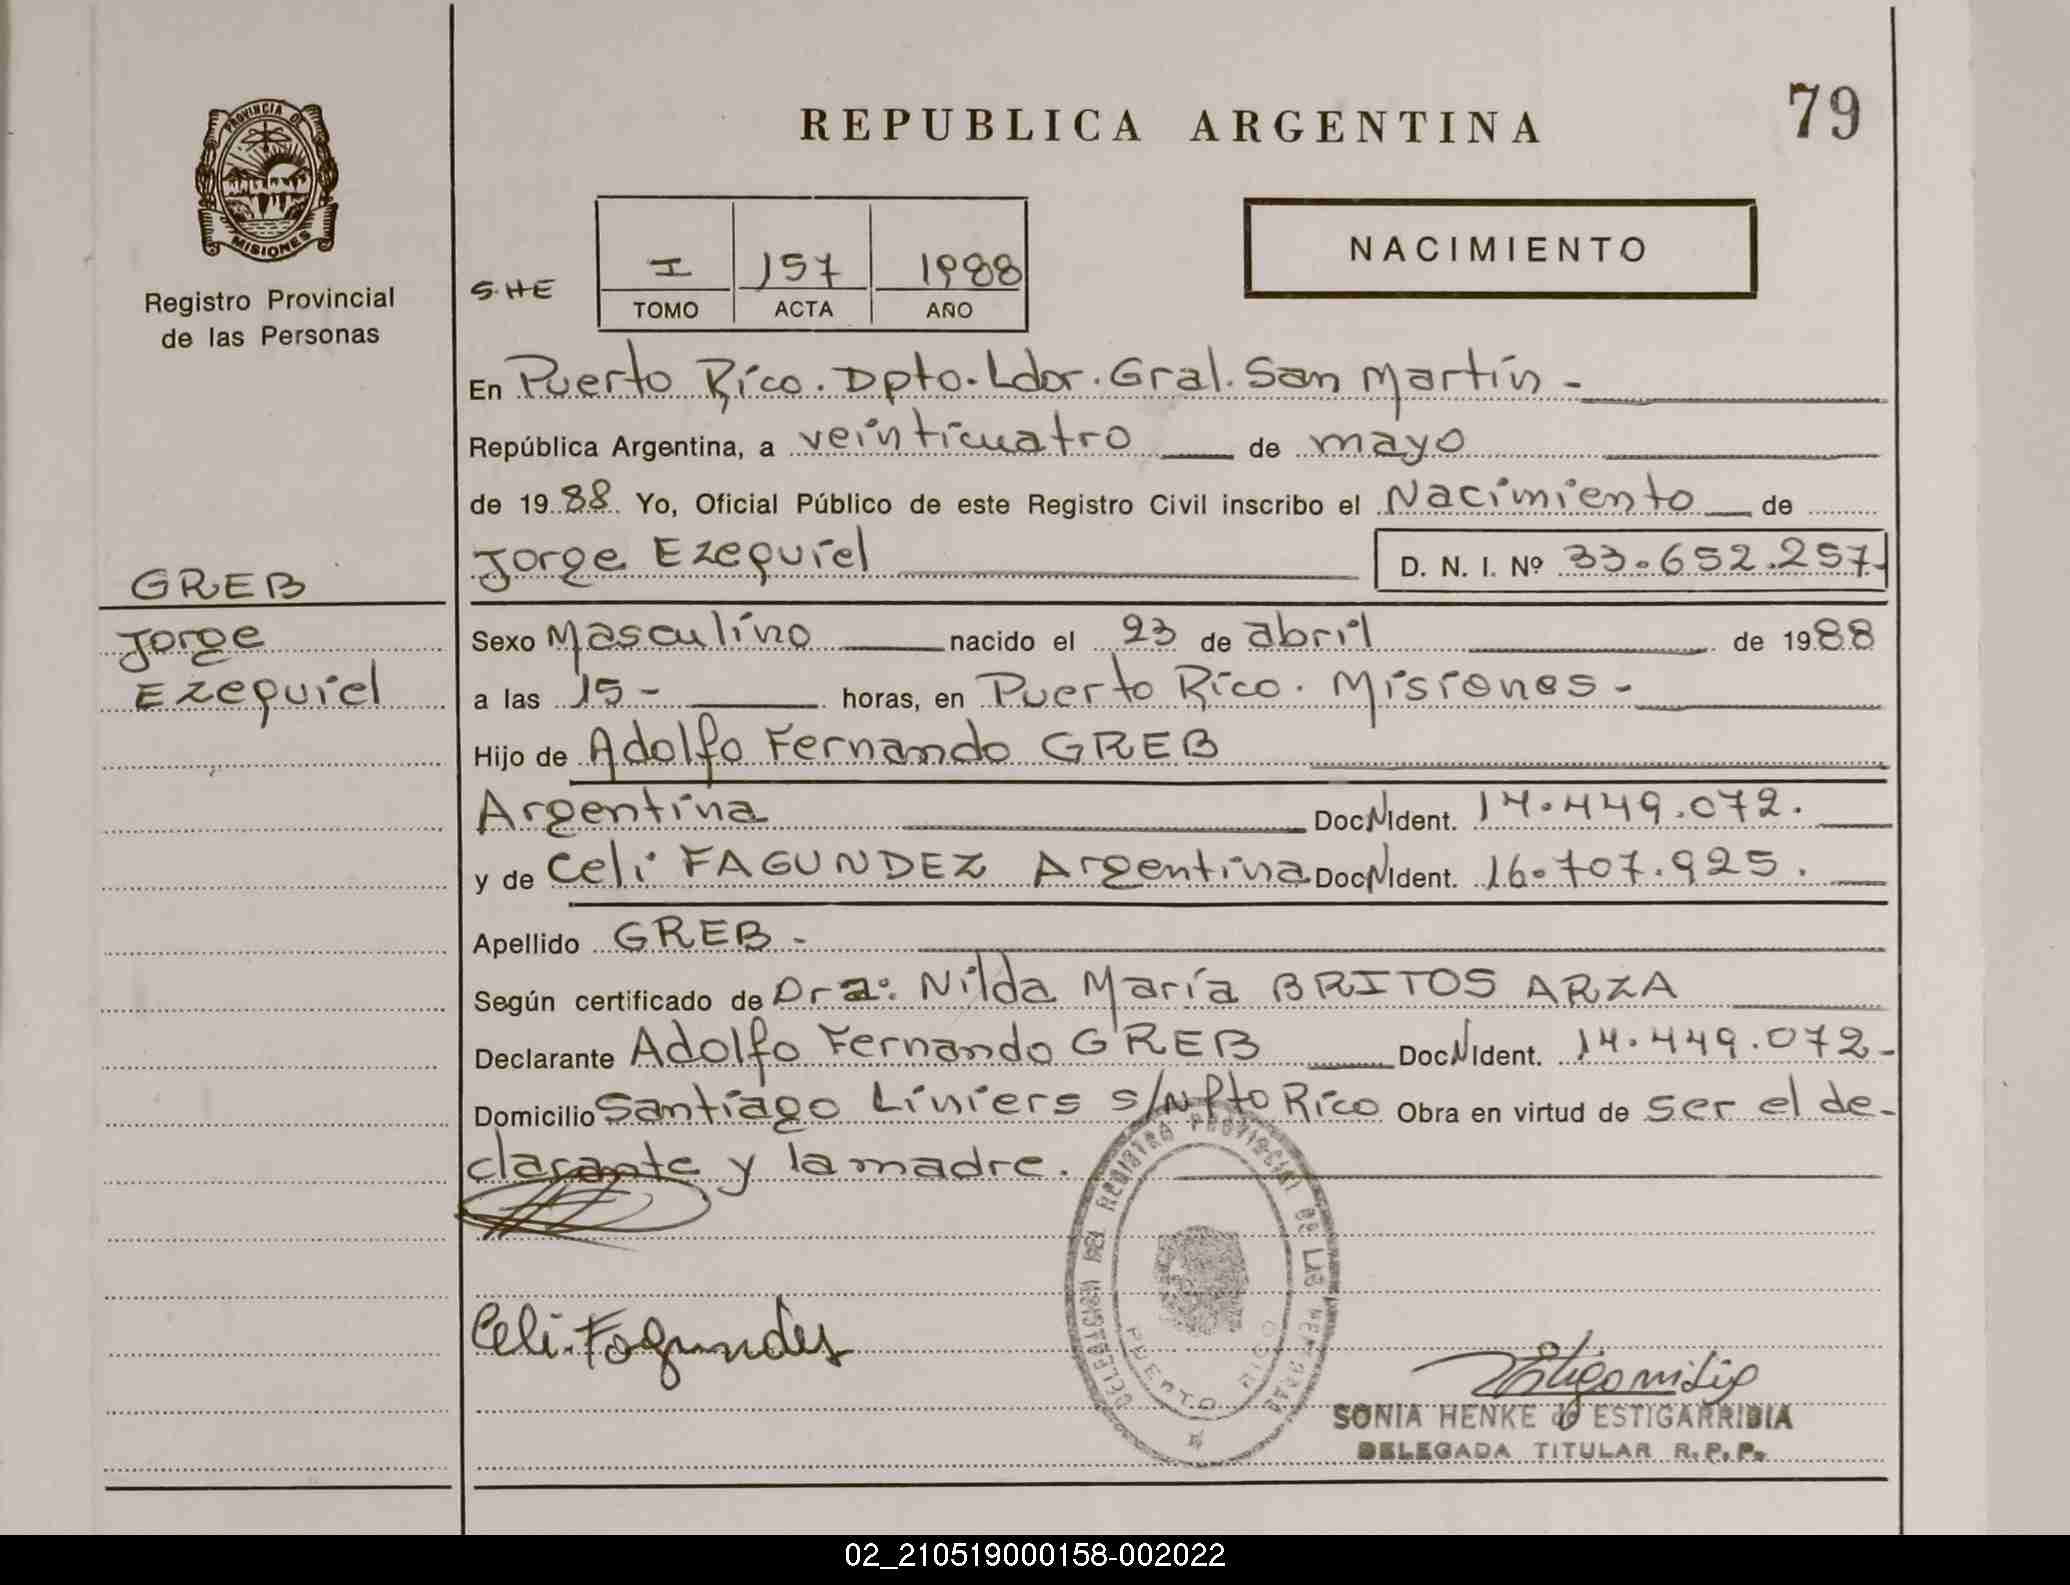 PROVINCIA DE
MISIONES
Registro Provincial
de las Personas
GREB
Jorge
Ezequiel
REPUBLICA ARGENTINA
79
S.HE
I 157 1988
TOMO ACTA AÑO
NACIMIENTO
En Puerto Rico. Dpto. Ldor. Gral. San Martín -
República Argentina, a veinticuatro de mayo
de 1988 Yo, Oficial Público de este Registro Civil inscribo el Nacimiento de
Jorge Ezequiel D. N. I. Nº 33.652.257
Sexo Masculino nacido el 23 de abril de 1988
a las 15 - horas, en Puerto Rico. Misiones -
Hijo de Adolfo Fernando GREB
Argentina Doc N Ident. 14.449.072.
y de Celi FAGUNDEZ Argentina Doc N Ident. 16.707.925.
Apellido GREB -
Según certificado de Dra: Nilda María BRITOS ARZA
Declarante Adolfo Fernando GREB Doc N Ident. 14.449.072-
Domicilio Santiago Liniers s/N Pto Rico Obra en virtud de ser el de-
clarante y la madre.
DELEGACION DEL REGISTRO PROVINCIAL DE LAS PERSONAS
PUERTO RICO
Celi Fagundes
SONIA HENKE de ESTIGARRIBIA
DELEGADA TITULAR R. P. P.
02_210519000158-002022